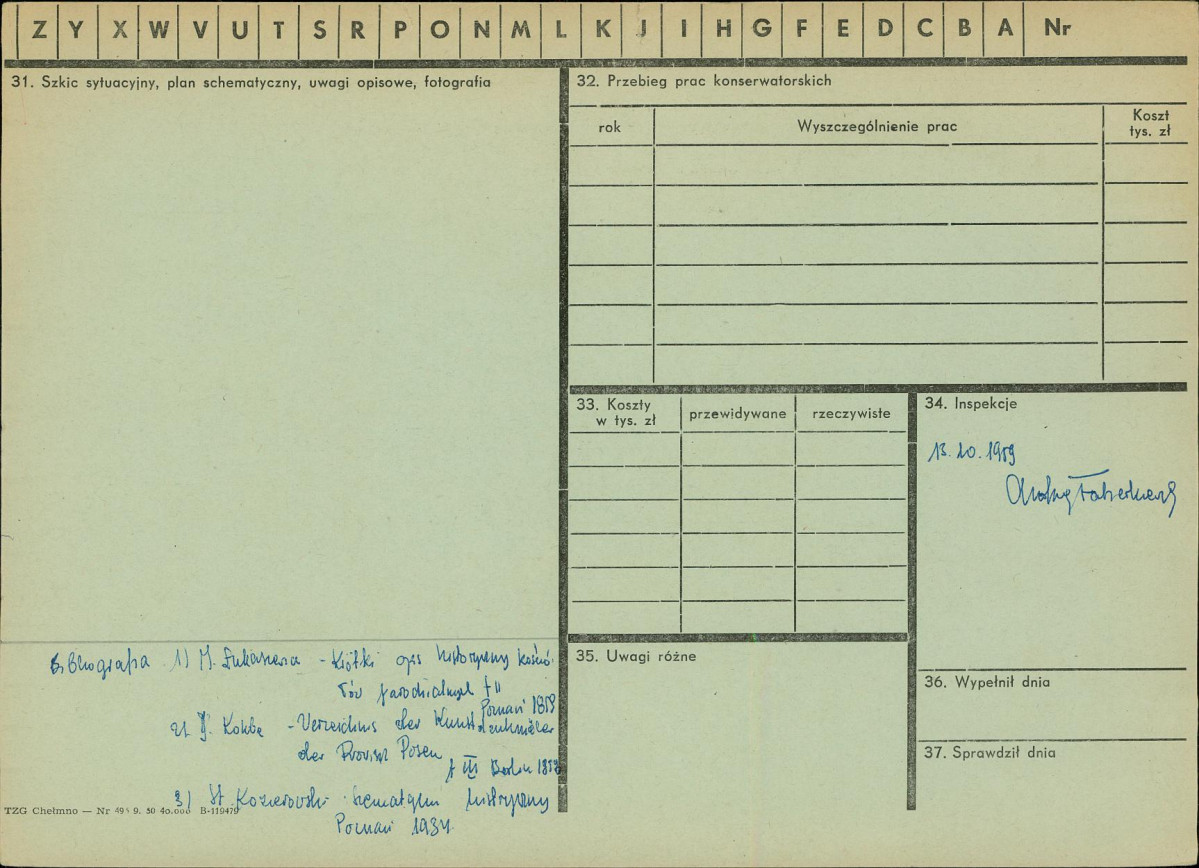 Z Y X W V U T S R P O N M L K J I H G F E D C B A Nr
31. Szkic sytuacyjny, plan schematyczny, uwagi opisowe, fotografia
Bibliografia 1) M. Łukaszewicz - Krótki opis historyczny kościo-
łów parochialnych t II
Poznań 1858
2) J. Kohte - Verzeichnis der Kunstdenkmäler
der Provinz Posen
t III Berlin
3) St. Kozierowski - Szematyzm historyczny
Poznań 1934
TZG Chełmno — Nr 495 9. 50 40.000 B-119479
32. Przebieg prac konserwatorskich
rok
Wyszczególnienie prac
Koszt
tys. zł
33. Koszty
w tys. zł
przewidywane
rzeczywiste
34. Inspekcje
13.10.1959
35. Uwagi różne
36. Wypełnił dnia
37. Sprawdził dnia